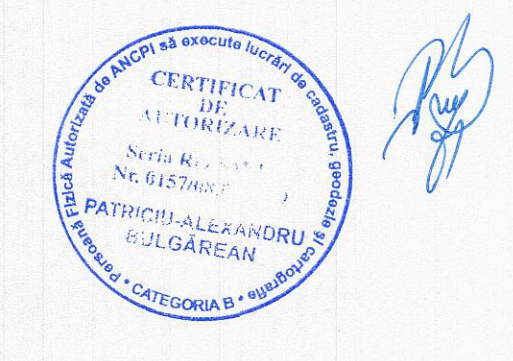 Persoană Fizică Autorizată de ANCPI să execute lucrări de cadastru, geodezie și cartografie
CERTIFICAT
DE
AUTORIZARE
Seria
Nr.
PATRICIU-ALEXANDRU
BULGĂREAN
• CATEGORIA B •